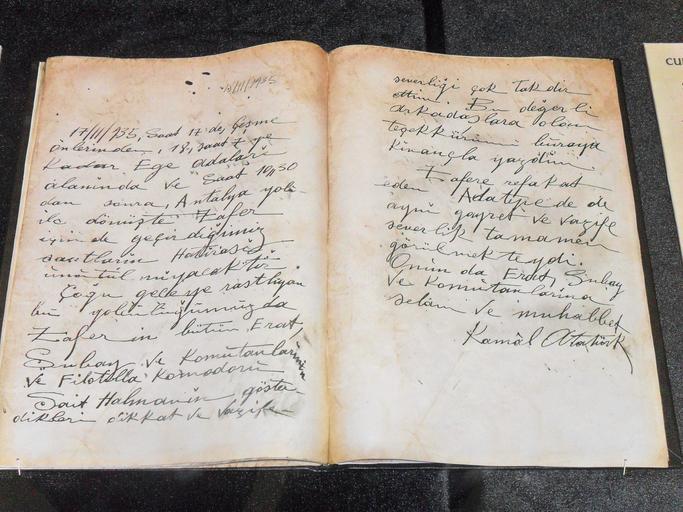 18/III/1935
17/III/935, Saat 17 de, Çeşme
önlerinden, 18, saat 7 ye
kadar Ege adaları
alanında ve saat 10,50
dan sonra, Antalya yolu
ile dönüşte Zafer
içinde geçirdiğimiz
saatların Hatırası
unutulmıyacaktır
Çoğu geceye rastlıyan
bu yolculuğumuzda
Zafer in bütün, Erat,
Subay ve Komutanlarının
ve Filotilla Komodoru
Sait Halmanın göster-
dikleri dikkat ve vazife-
severliği çok takdir
ettim. Bu değerli
arkadaşlara olan
teşekkürümü buraya
kıvançla yazdım.
Zafere refakat
eden Adatepe de de
aynı gayret ve vazife
severlik tamamen
görülmekteydi.
Onun da Erat, Subay
ve Komutanlarına
selâm ve muhabbet
Kamâl Atatürk
cu